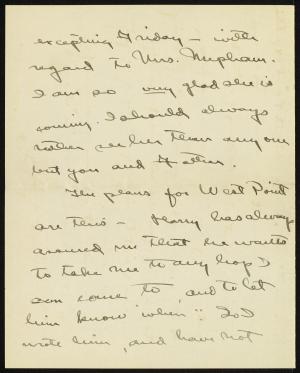 excepting Friday – with
regard to Mrs. Mepham.
I am so very glad she is
coming. I should always
rather see her than any one
but you and Father.
The plans for West Point
are this – Harry has always
assured me that he wants
to take me to any hop I
can come to, and to let
him know "when". So I
wrote him, and have not